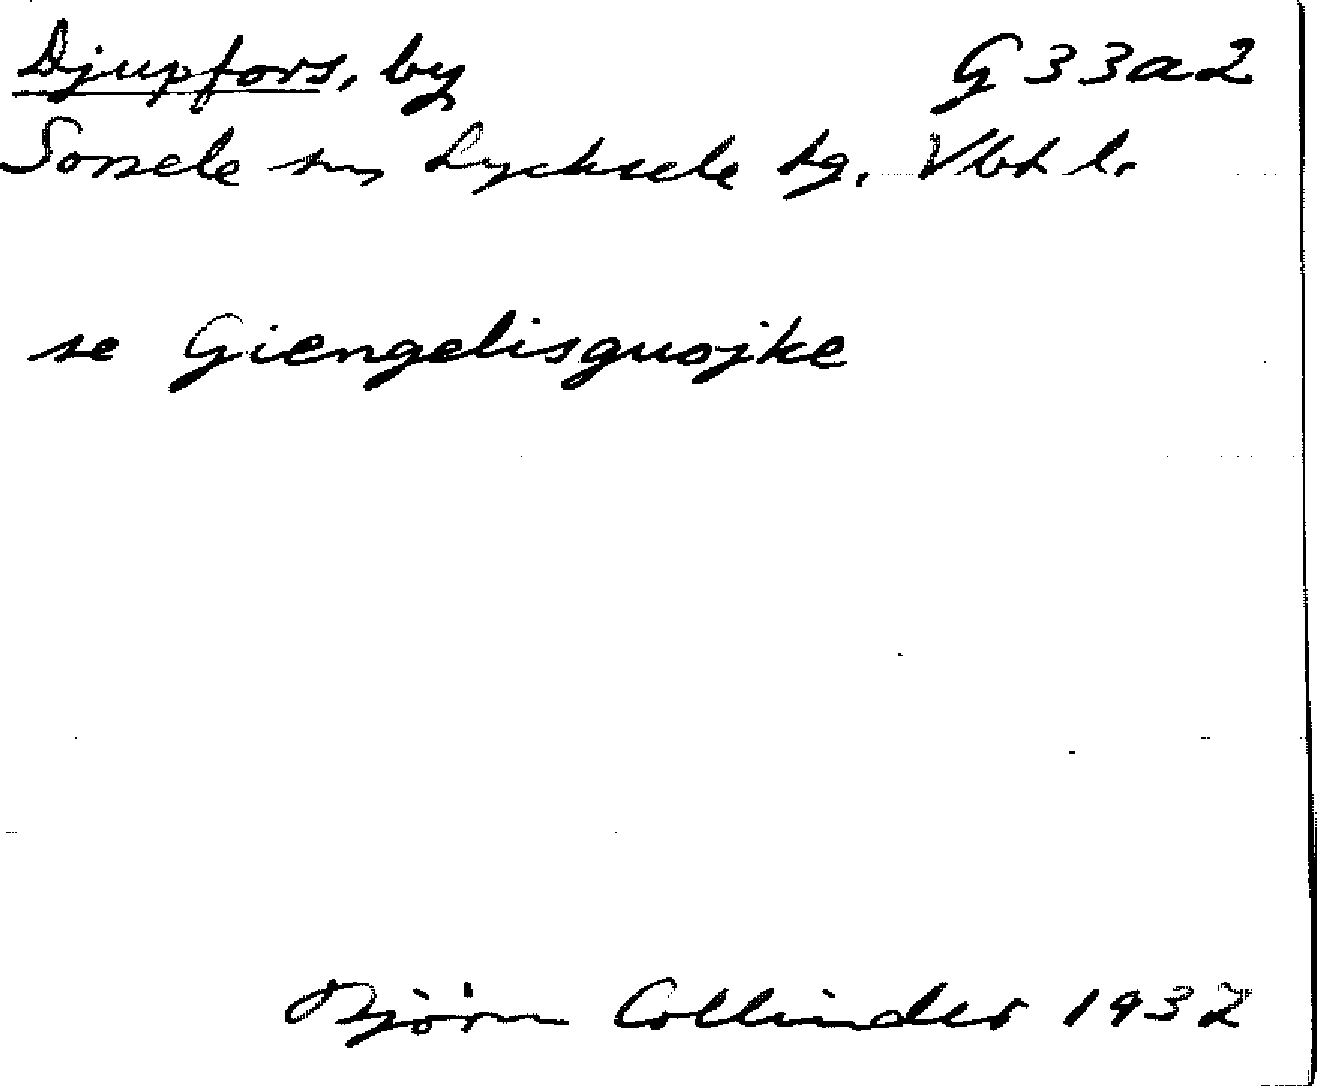 Djupfors, by G 33a2
Sorsele sn, Lycksele lg. Vbt l.
se Giengelisguojke
Björn Collinder 1932